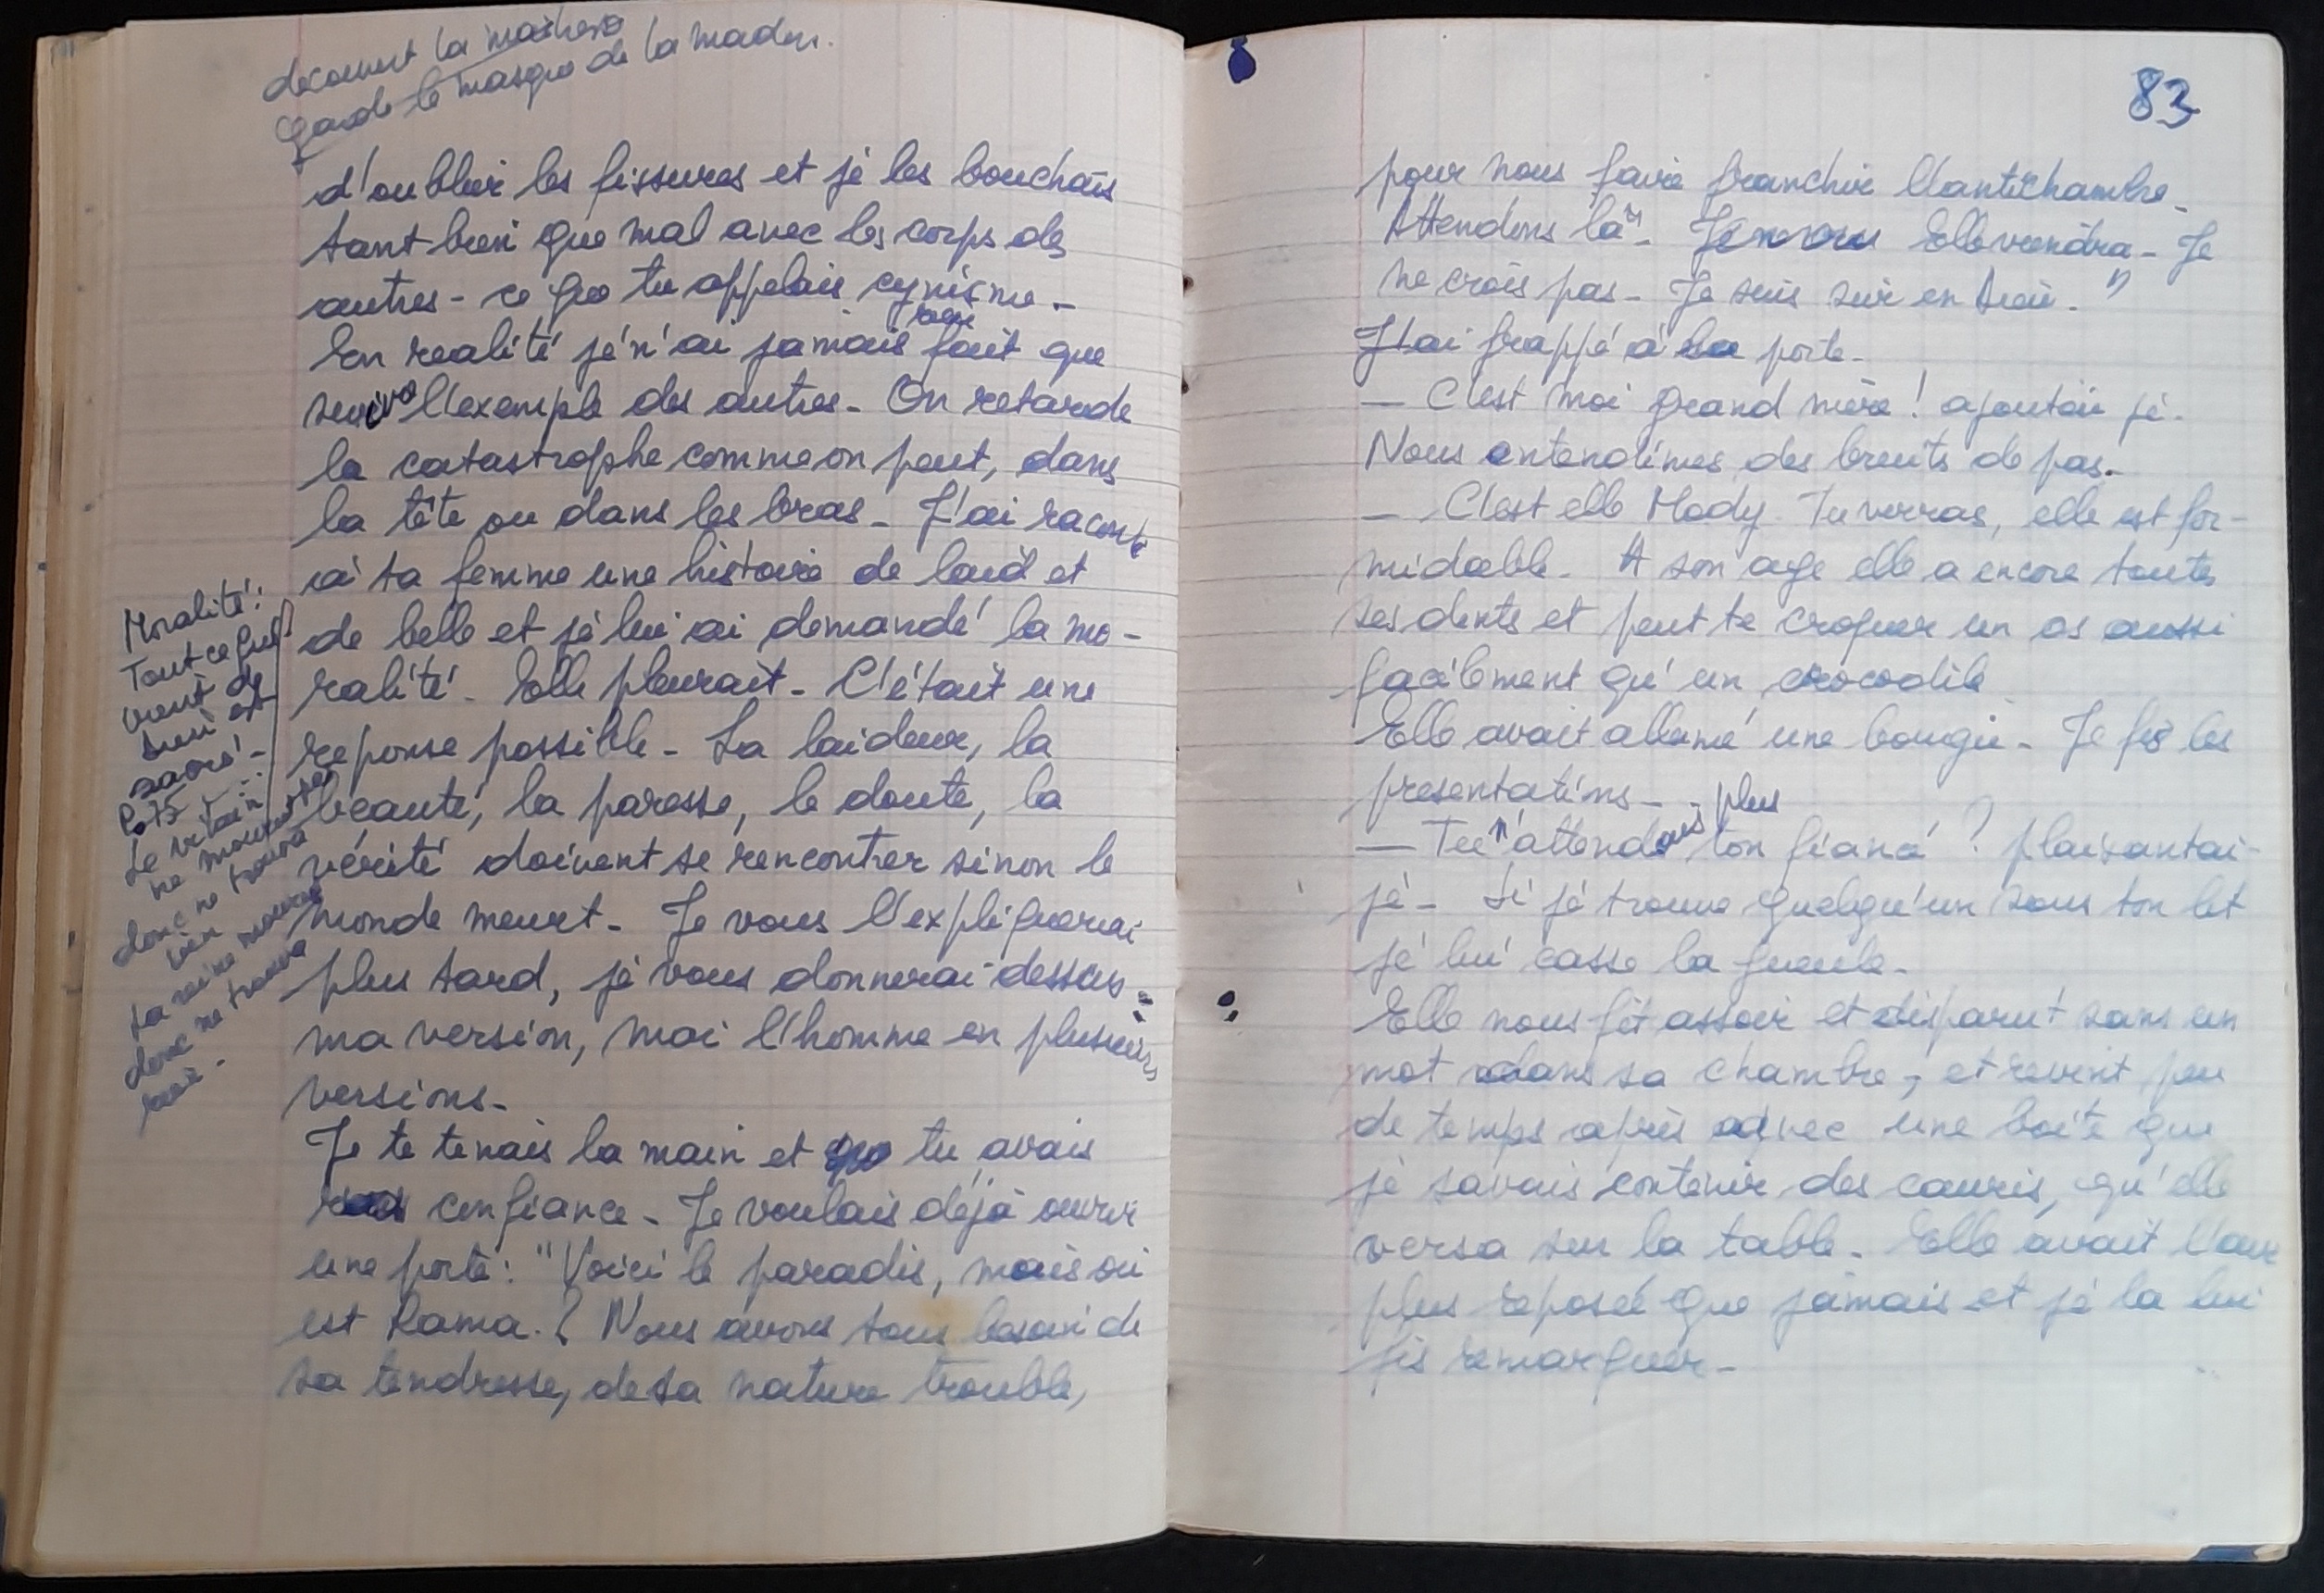 decouvrt la
Garde le masque de la madon.
d'oublier les fissures et je les bouchais
tant bien que mal avec les corps des
autres - ce que tu appelais cynisme -
En realité je n'ai jamais rien fait que
suivre l'exemple des autres - On retarde
la catastrophe comme on peut, dans
la tête ou dans les bras - J'ai raconté
à ta femme une histoire de laid et
de belle et je lui ai demandé la mo-
ralité - Elle pleurait - C'était une
reponse possible - La laideur, la
beauté, la paresse, le doute, la
vérité doivent se rencontrer sinon le
monde meurt - Je vous l'expliquerai
plus tard, je vous donnerai dessus
ma version, moi l'homme en plusieurs
versions -
Je te tenais la main et tu avais
confiance - Je voulais déjà ouvrir
une porte : "Voici le paradis, mais où
est Rama ? Nous avons tous besoin de
sa tendresse, de sa nature trouble,
Moralité :
Tout ce qui
vient de
est
sacré -
Le
ne
donc ne trouva
rien
La reine
donc ne trouva
83
pour nous faire franchir l'antichambre -
Attendons là" - Elle viendra - Je
ne crois pas - Je suis sûr en
J'ai frappé à la porte -
— C'est moi grand mère ! ajoutai je -
Nous entendîmes des bruits de pas -
— C'est elle Mody Tu verras, elle est for-
midable - A son age elle a encore toutes
ses dents et peut te croquer un os aussi
facilement qu'un crocodile
Elle avait allumé une bougie - Je fis les
presentations -
— Tu n'attendais plus ton fiancé ? plaisantai-
je - Si je trouve quelqu'un sous ton lit
je lui casse la gueule -
Elle nous fit assoir et disparut sans un
mot dans sa chambre, et revint peu
de temps après avec une boîte que
je savais contenir des cauris, qu'elle
versa sur la table - Elle avait l'air
plus reposée que jamais et je la lui
fis remarquer -